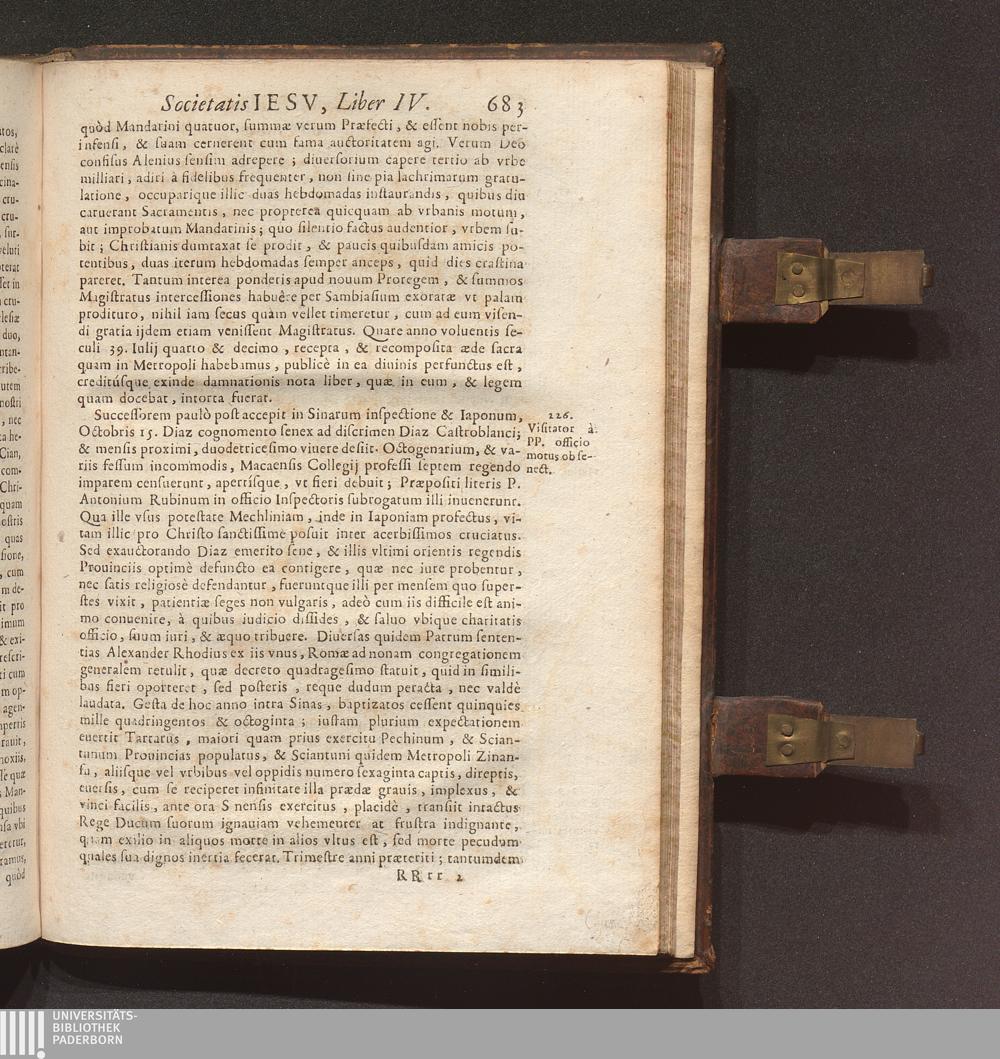 Societatis IESV, Liber IV. 683
quòd Mandarini quatuor, summæ verum Præfecti, & essent nobis per-
infensi, & suam cernerent cum fama auctoritatem agi. Verum Deo
confisus Alenius sensim adrepere; diuersorium capere tertio ab vrbe
milliari, adiri à fidelibus frequenter, non sine pia lachrimarum gratu-
latione, occuparique illic duas hebdomadas instaurandis, quibus diu
caruerant Sacramentis, nec propterea quicquam ab vrbanis motum,
aut improbatum Mandarinis; quo silentio factus audentior, vrbem su-
bit; Christianis dumtaxat se prodit, & paucis quibusdam amicis po-
tentibus, duas iterum hebdomadas semper anceps, quid dies crastina
pareret. Tantum interea ponderis apud nouum Proregem, & summos
Magistratus intercessiones habuêre per Sambiasium exoratæ vt palam
prodituro, nihil iam secus quàm vellet timeretur, cum ad eum visen-
di gratia ijdem etiam venissent Magistratus. Quare anno voluentis se-
culi 39. Iulij quarto & decimo, recepta, & recomposita æde sacra
quam in Metropoli habebamus, publicè in ea diuinis perfunctus est,
creditúsque exinde damnationis nota liber, quæ in eum, & legem
quam docebat, intorta fuerat.
Successorem paulò post accepit in Sinarum inspectione & Iaponum,
Octobris 15. Diaz cognomento senex ad discrimen Diaz Castroblanci;
& mensis proximi, duodetricesimo viuere desiit. Octogenarium, & va-
rijs fessum incommodis, Macaensis Collegij professi septem regendo
imparem censuerunt, apertísque, vt fieri debuit; Præpositi literis P.
Antonium Rubinum in officio Inspectoris subrogatum illi inuenerunt.
Qua ille vsus potestate Mechliniam, inde in Iaponiam profectus, vi-
tam illic pro Christo sanctissimè posuit inter acerbissimos cruciatus.
Sed exauctorando Diaz emerito sene, & illis vltimi orientis regendis
Prouinciis optimè defuncto ea contigere, quæ nec iure probentur,
nec satis religiosè defendantur, fueruntque illi per mensem quo super-
stes vixit, patientiæ seges non vulgaris, adeò cum iis difficile est ani-
mo conuenire, à quibus iudicio dissides, & saluo vbique charitatis
officio, suum iuri, & æquo tribuere. Diuersas quidem Patrum senten-
tias Alexander Rhodius ex iis vnus, Romæ ad nonam congregationem
generalem retulit, quæ decreto quadragesimo statuit, quid in simili-
bus fieri oporteret, sed posteris, reque dudum peracta, nec valdè
laudata. Gesta de hoc anno intra Sinas, baptizatos cessent quinquies
mille quadringentos & octoginta; iustam plurium expectationem
euertit Tartarus, maiori quam prius exercitu Pechinum, & Scian-
tunum Prouincias populatus, & Sciantuni quidem Metropoli Zinan-
fu, aliisque vel vrbibus vel oppidis numero sexaginta captis, direptis,
euersis, cum se reciperet infinitate illa prædæ grauis, implexus, &
vinci facilis, ante ora S nensis exercitus, placidè, transiit intactus
Rege Ducum suorum ignauiam vehementer at frustra indignante,
quam exilio in aliquos morte in alios vltus est, sed morte pecudum
quales sua dignos inertia fecerat. Trimestre anni præteriti; tantumdem
RRrr 2
226.
Visitator à
PP. officio
motus ob se-
nect.
UNIVERSITÄTS-
BIBLIOTHEK
PADERBORN